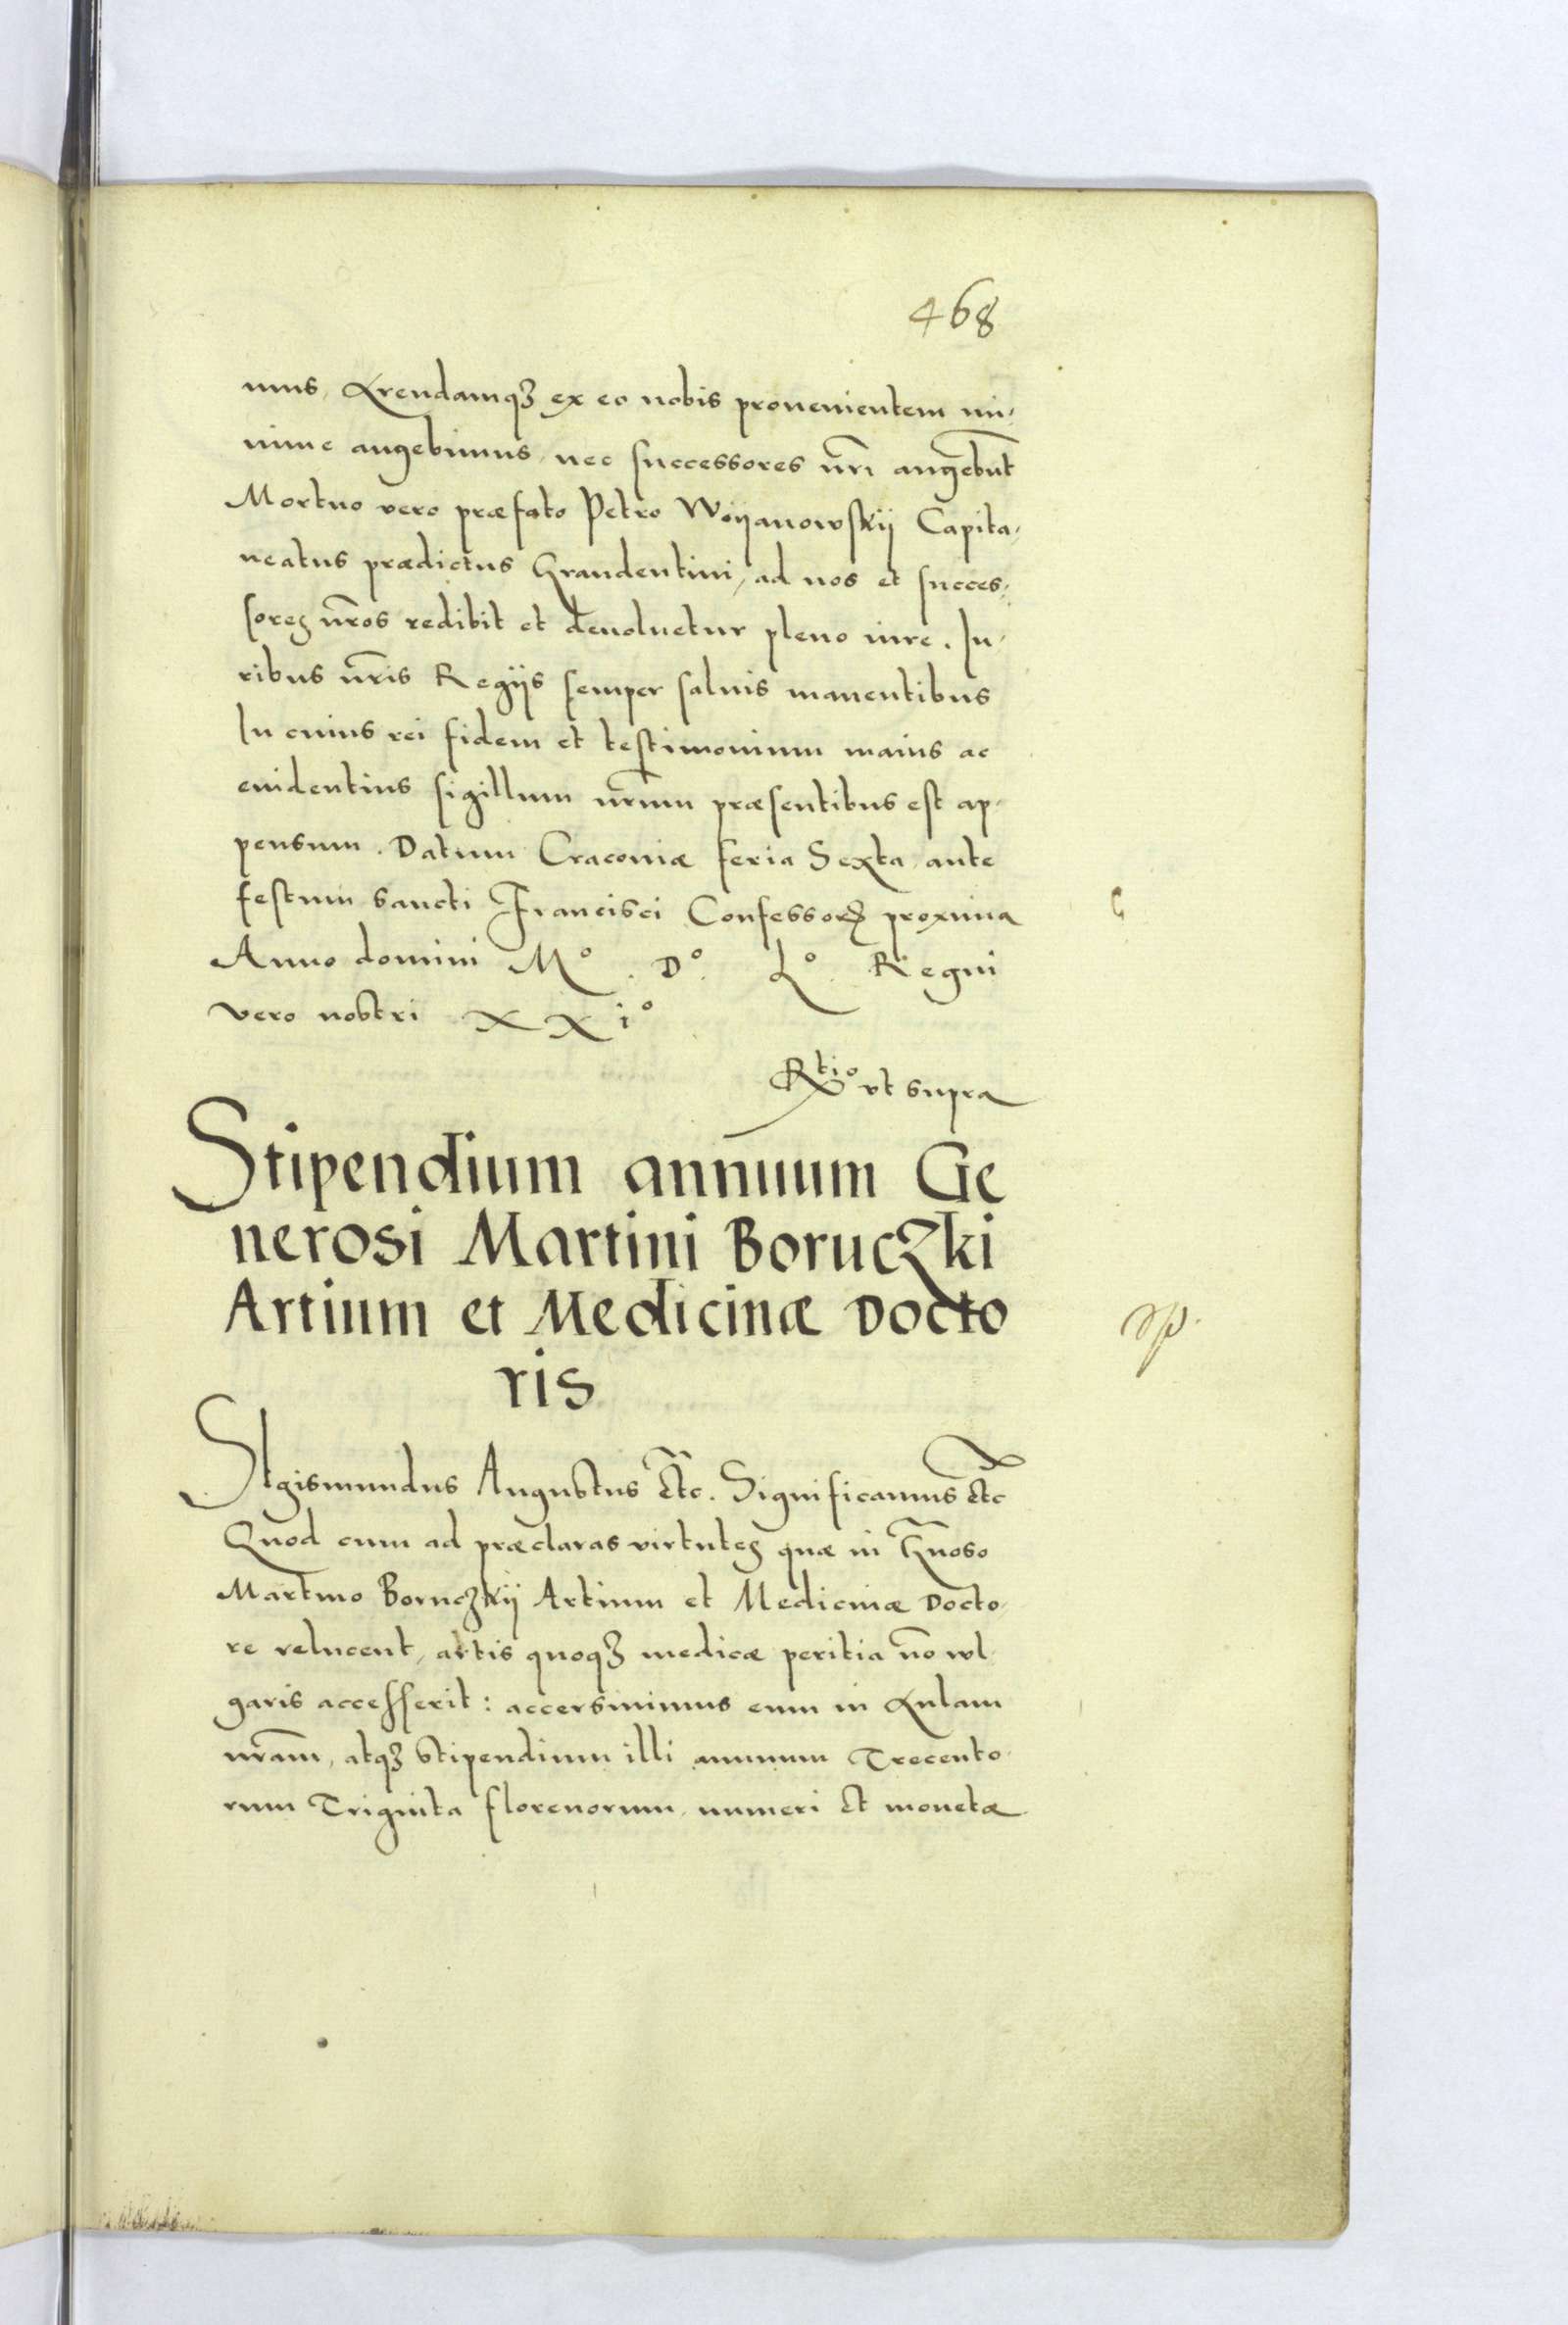 468
mus, Arendamqꝫ ex eo nobis prouenientem mi-
nime augebimus, nec successores nr̃i augebũt
Mortuo vero præfato Petro Woyanowskij Capita-
neatus prædictus Graudentini, ad nos et succes-
sores nr̃os redibit et deuoluetur pleno iure. Iu-
ribus nr̃is Regijs semper saluis manentibus
In cuius rei fidem et testimonium maius ac
euidentius sigillum nr̃um præsentibus est ap-
pensum. Datum Cracouiæ feria Sexta ante
festum sancti Francisci Confessoris proxima
Anno domini M° . D° . L° . Regni
vero nostri XXi°
Rtio vt supra
Stipendium annuum Ge
nerosi Martini Boruczki
Artium et Medicinæ Docto
ris
Sigismundus Augustus Etc. Significamus Etc
Quod cum ad præclaras virtutes quæ in Gñoso
Martino Boruczkij Artium et Medicinæ Docto-
re relucent, artis quoqꝫ medicæ peritia nõ wl-
garis accesserit: accersiuimus eum in Aulam
nr̃am, atqꝫ stipendium illi annuum Trecento-
rum Triginta florenorum, numeri et monetæ